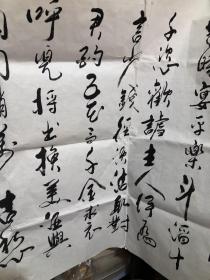 時宴平樂斗酒十
千恣歡謔主人何為
言少錢徑須沽取對
君酌五花馬千金裘
呼兒將出換美酒與
同銷萬古愁